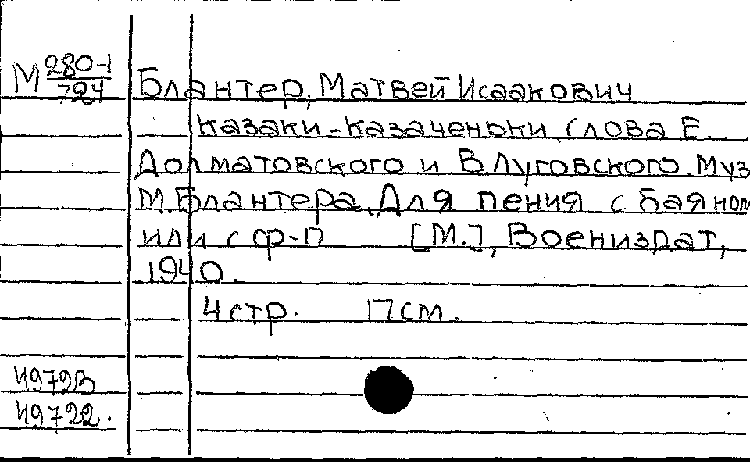 М 280-1/724
Блантер, Матвей Исаакович
Казаки-казаченьки. Слова Е.
Долматовского и В. Луговского. Муз
М. Блантера. Для пения с баяном
или с ф-п [М.], Воениздат,
1940.
4 стр. 17 см.
49723
49722.